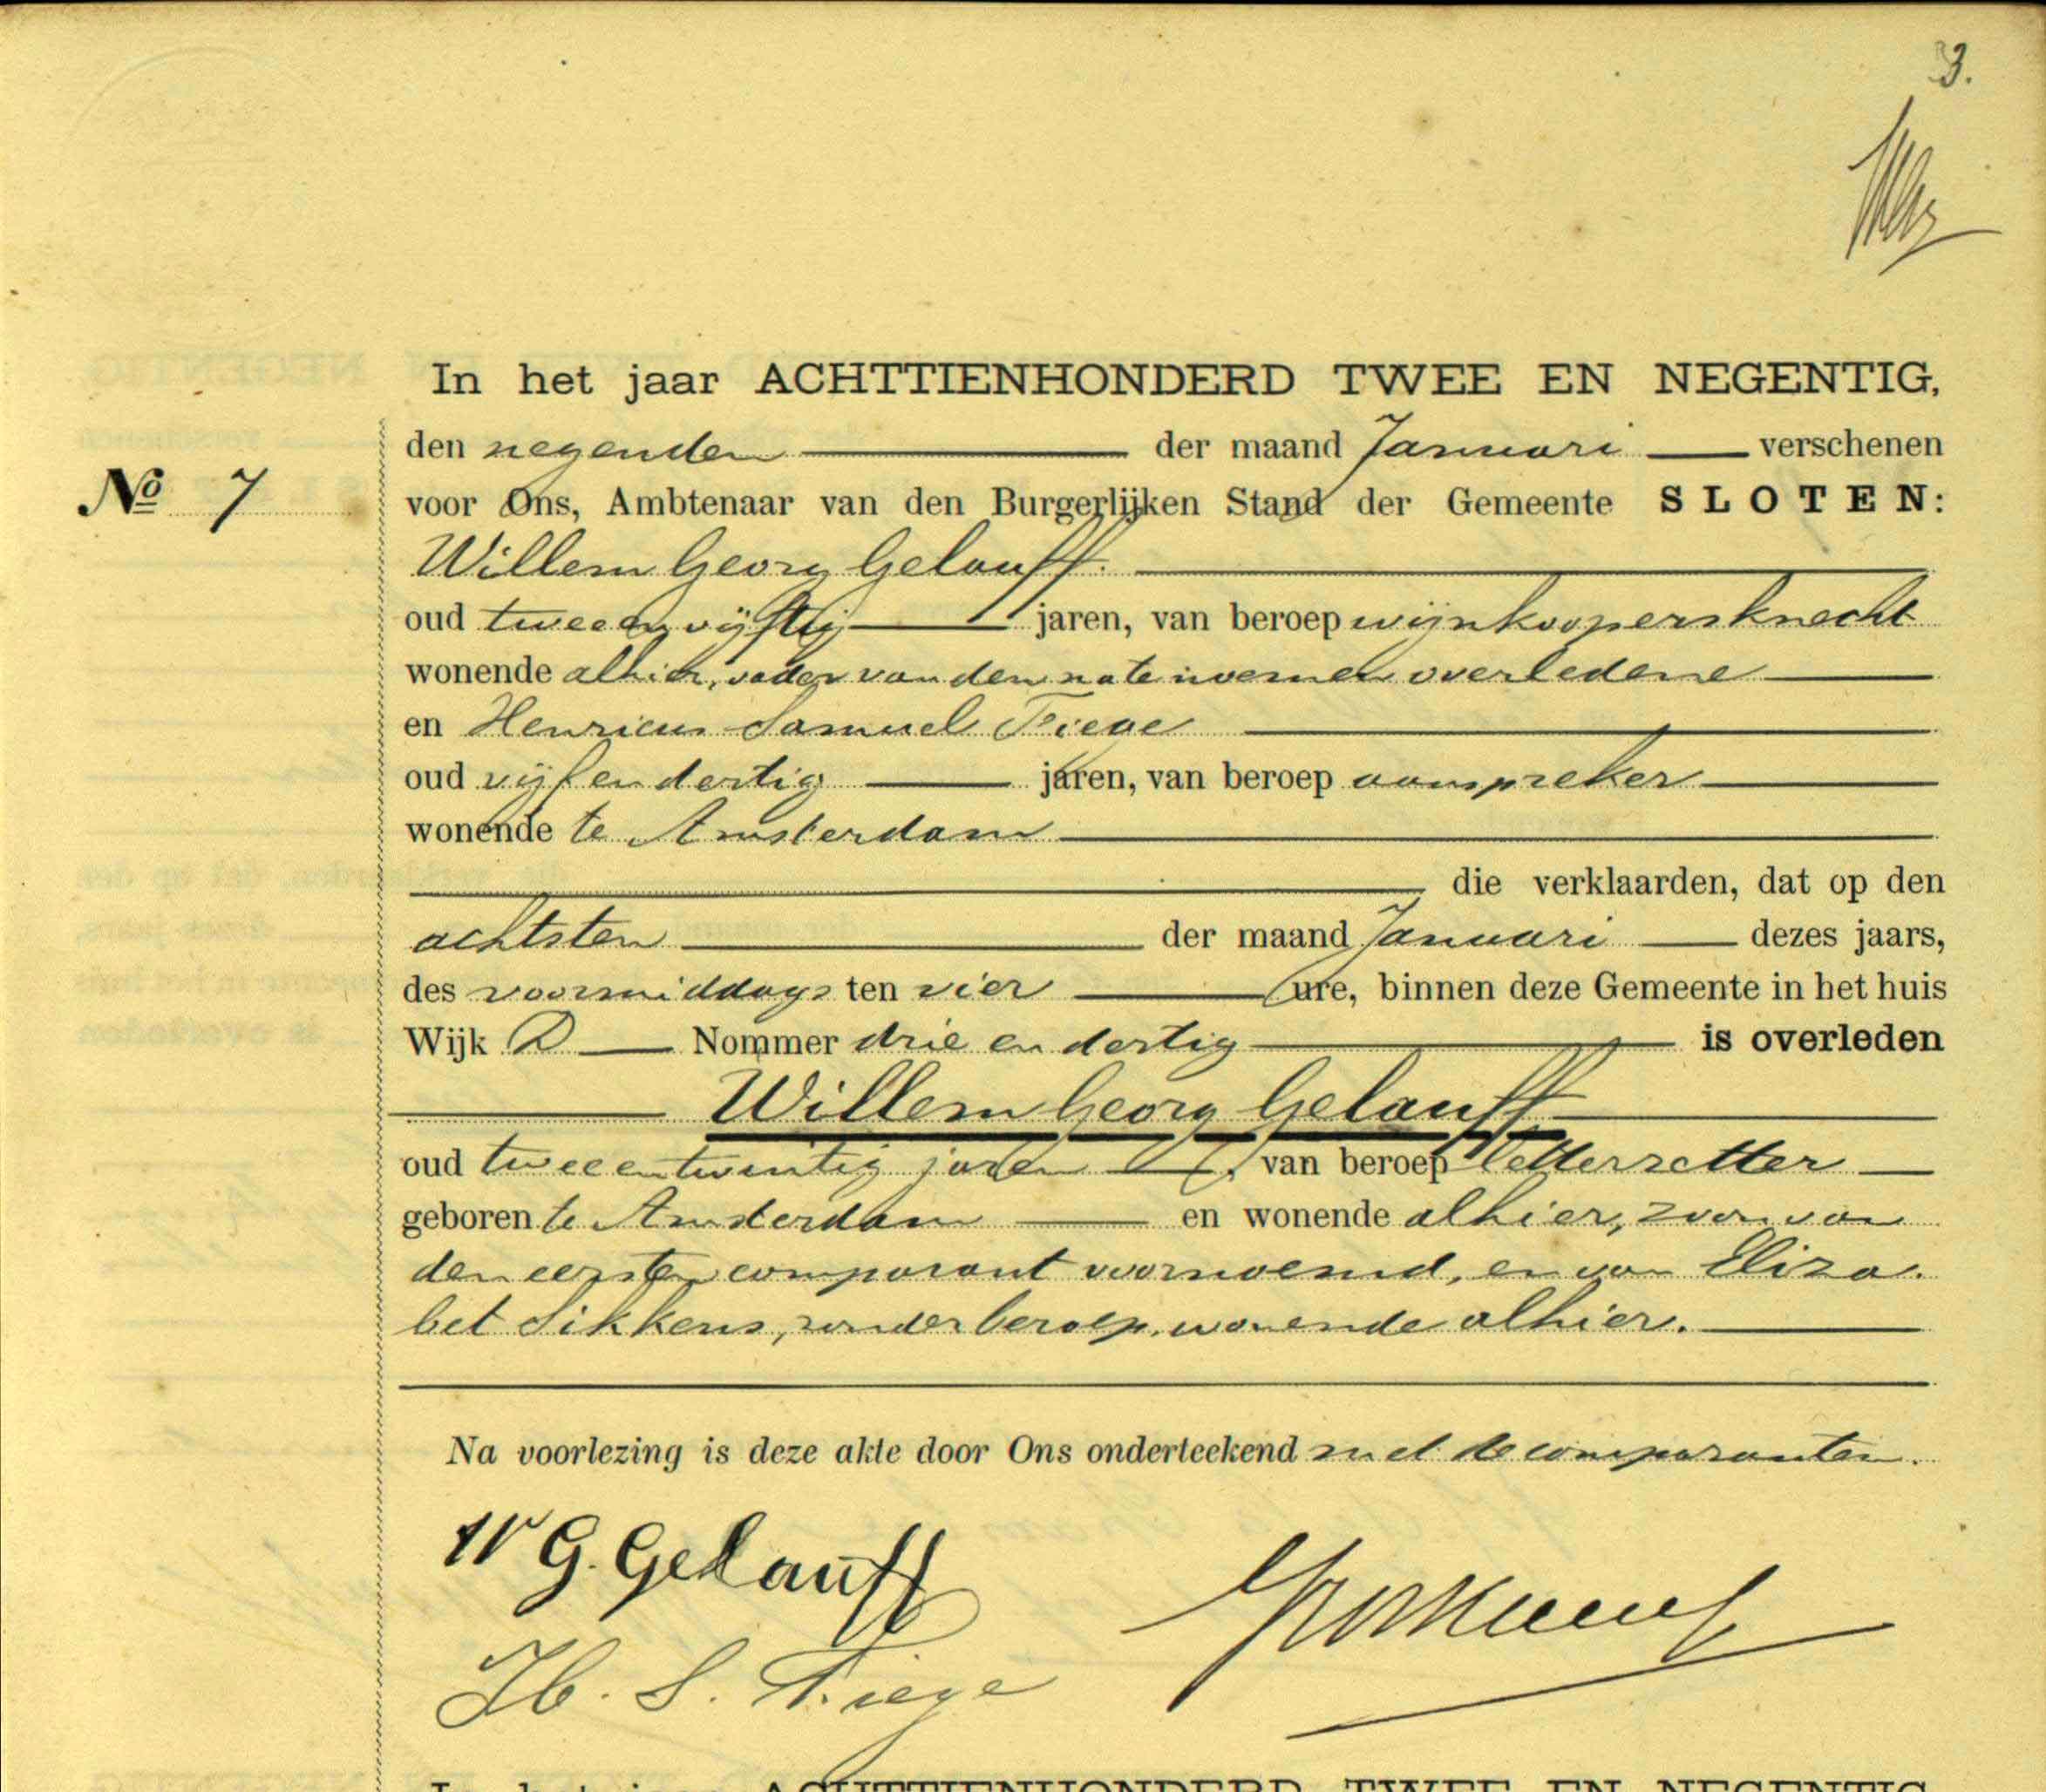 3.
In het jaar ACHTTIENHONDERD TWEE EN NEGENTIG,
den negenden der maand Januari verschenen
No 7
voor Ons, Ambtenaar van den Burgerlijken Stand der Gemeente SLOTEN:
Willem Georg Gelauff.
oud tweeenvijftig jaren, van beroep wijnkoopersknecht
wonende alhier, vader van den nate noemen overledene
en Henricus Samuel Fiege
oud vijf en dertig jaren, van beroep aanspreker
wonende te Amsterdam
die verklaarden, dat op den
achtsten der maand Januari dezes jaars,
des voormiddags ten vier ure, binnen deze Gemeente in het huis
Wijk D Nommer drie en dertig is overleden
Willem Georg Gelauff
oud twee en twintig jaren, van beroep letterzetter
geboren te Amsterdam en wonende alhier, zoon van
den eersten comparant voornoemd, en van Eliza.
bet Sikkens, zonder beroep, wonende alhier.
Na voorlezing is deze akte door Ons onderteekend met de comparanten.
W G. Gelauff
H. S. Fiege
In het jaar ACHTTIENHONDERD TWEE EN NEGENTIG